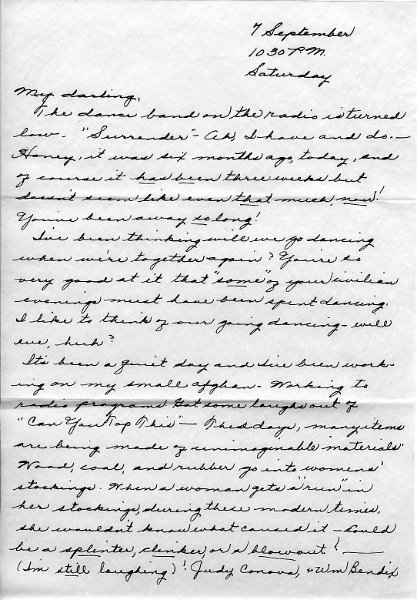 7 September
1030 P.M.
Saturday
My darling,
The dance band on the radio is turned
low. "Surrender" - Ah, I have and do. -
Honey, it was six months ago, today, and
of course it has been three weeks but
doesn't seem like even that much, now!
You've been away so long!
I've been thinking will we go dancing
when we're together again? You're so
very good at it that "some" of your civilian
evenings must have been spent dancing.
I like to think of our going dancing - will
we, huh?
It's been a quiet day and I've been work-
ing on my small afghan. Working to
radio programs. Got some laughs out of
"Can You Top This" - These days, many items
are being made of unimaginable materials"
Wood, coal, and rubber go into womens'
stockings. When a woman gets a "run" in
her stockings, during these modern times,
she wouldn't know what caused it - Could
be a splinter, clinker, or a blowout! -
(I'm still laughing)! Judy Canova, & Wm Bendix